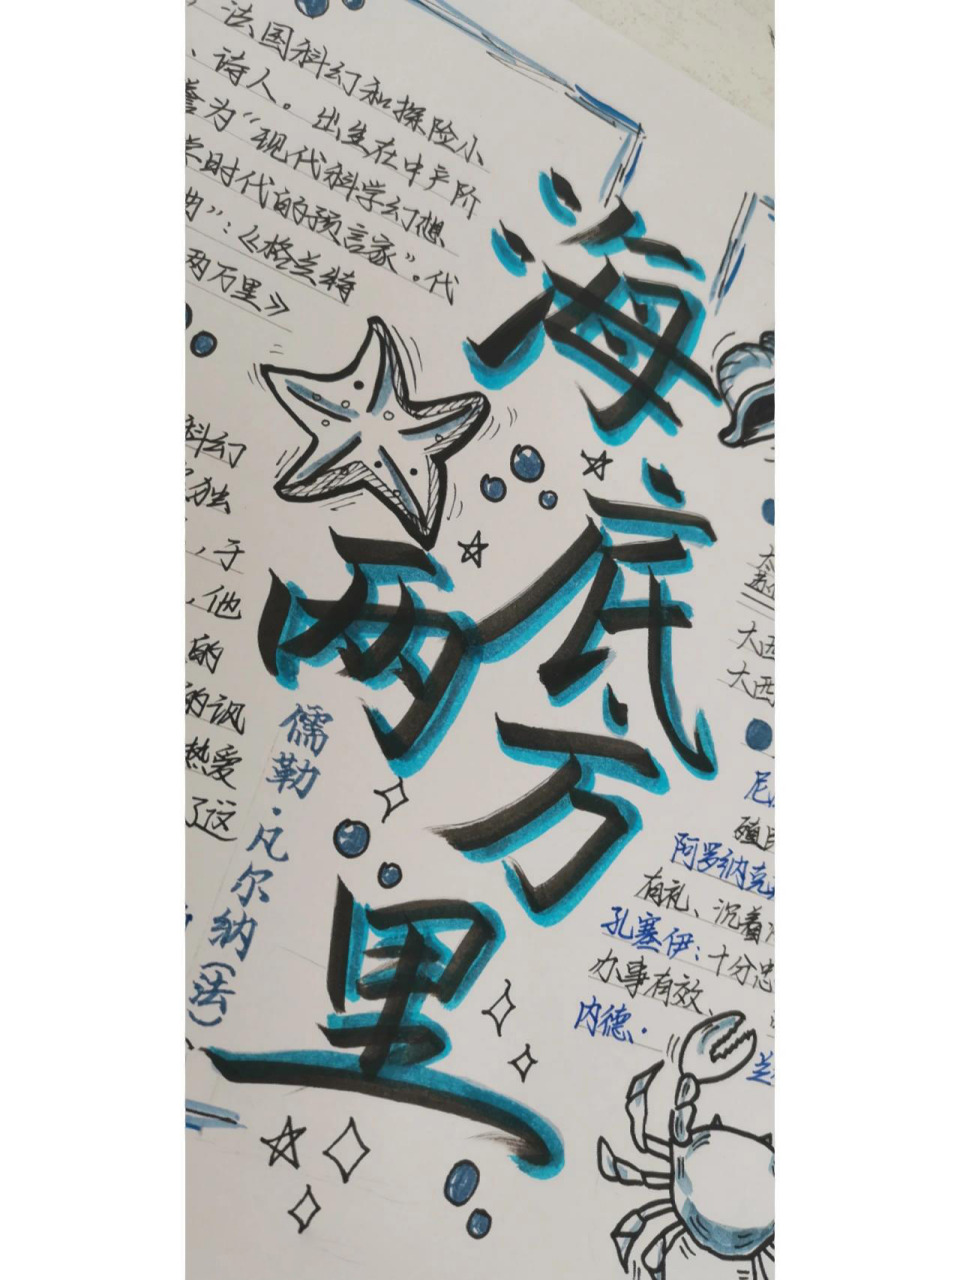 法国科幻和探险小
、诗人。出生在中产阶
誉为“现代科学幻想
学时代的预言家”。代
曲”：《格兰特
两万里》
海底
两万里
儒勒·凡尔纳(法)
科幻
独
，于
，他
的
的讽
热爱
了这
大西
大西
尼
殖民
阿罗纳克
有礼、沉着
孔塞伊：十分忠
办事有效、
内德·
兰